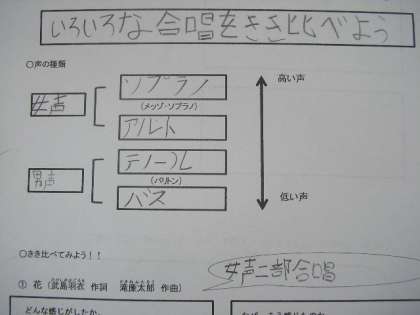 いろいろな合唱をきき比べよう
○声の種類
高い声
ソプラノ
女声
(メッゾ・ソプラノ)
アルト
テノール
男声
(バリトン)
バス
低い声
○きき比べてみよう！！
女声二部合唱
① 花（武島羽衣 作詞 滝廉太郎 作曲）
どんな感じがしたか。